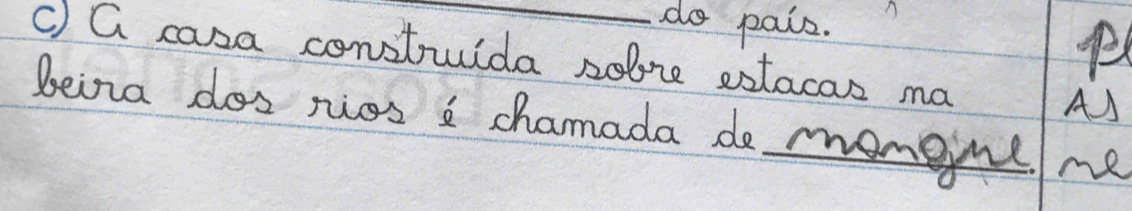 do país.
c) A casa construída sobre estacas na
beira dos rios é chamada de mangue.